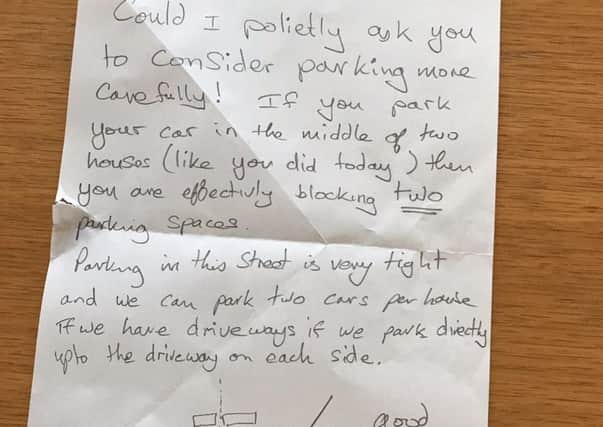 Could I polietly ask you
to consider parking more
carefully! If you park
your car in the middle of two
houses (like you did today) then
you are effectivly blocking two
parking spaces.
Parking in this street is very tight
and we can park two cars per house
If we have driveways if we park directly
upto the driveway on each side.
good